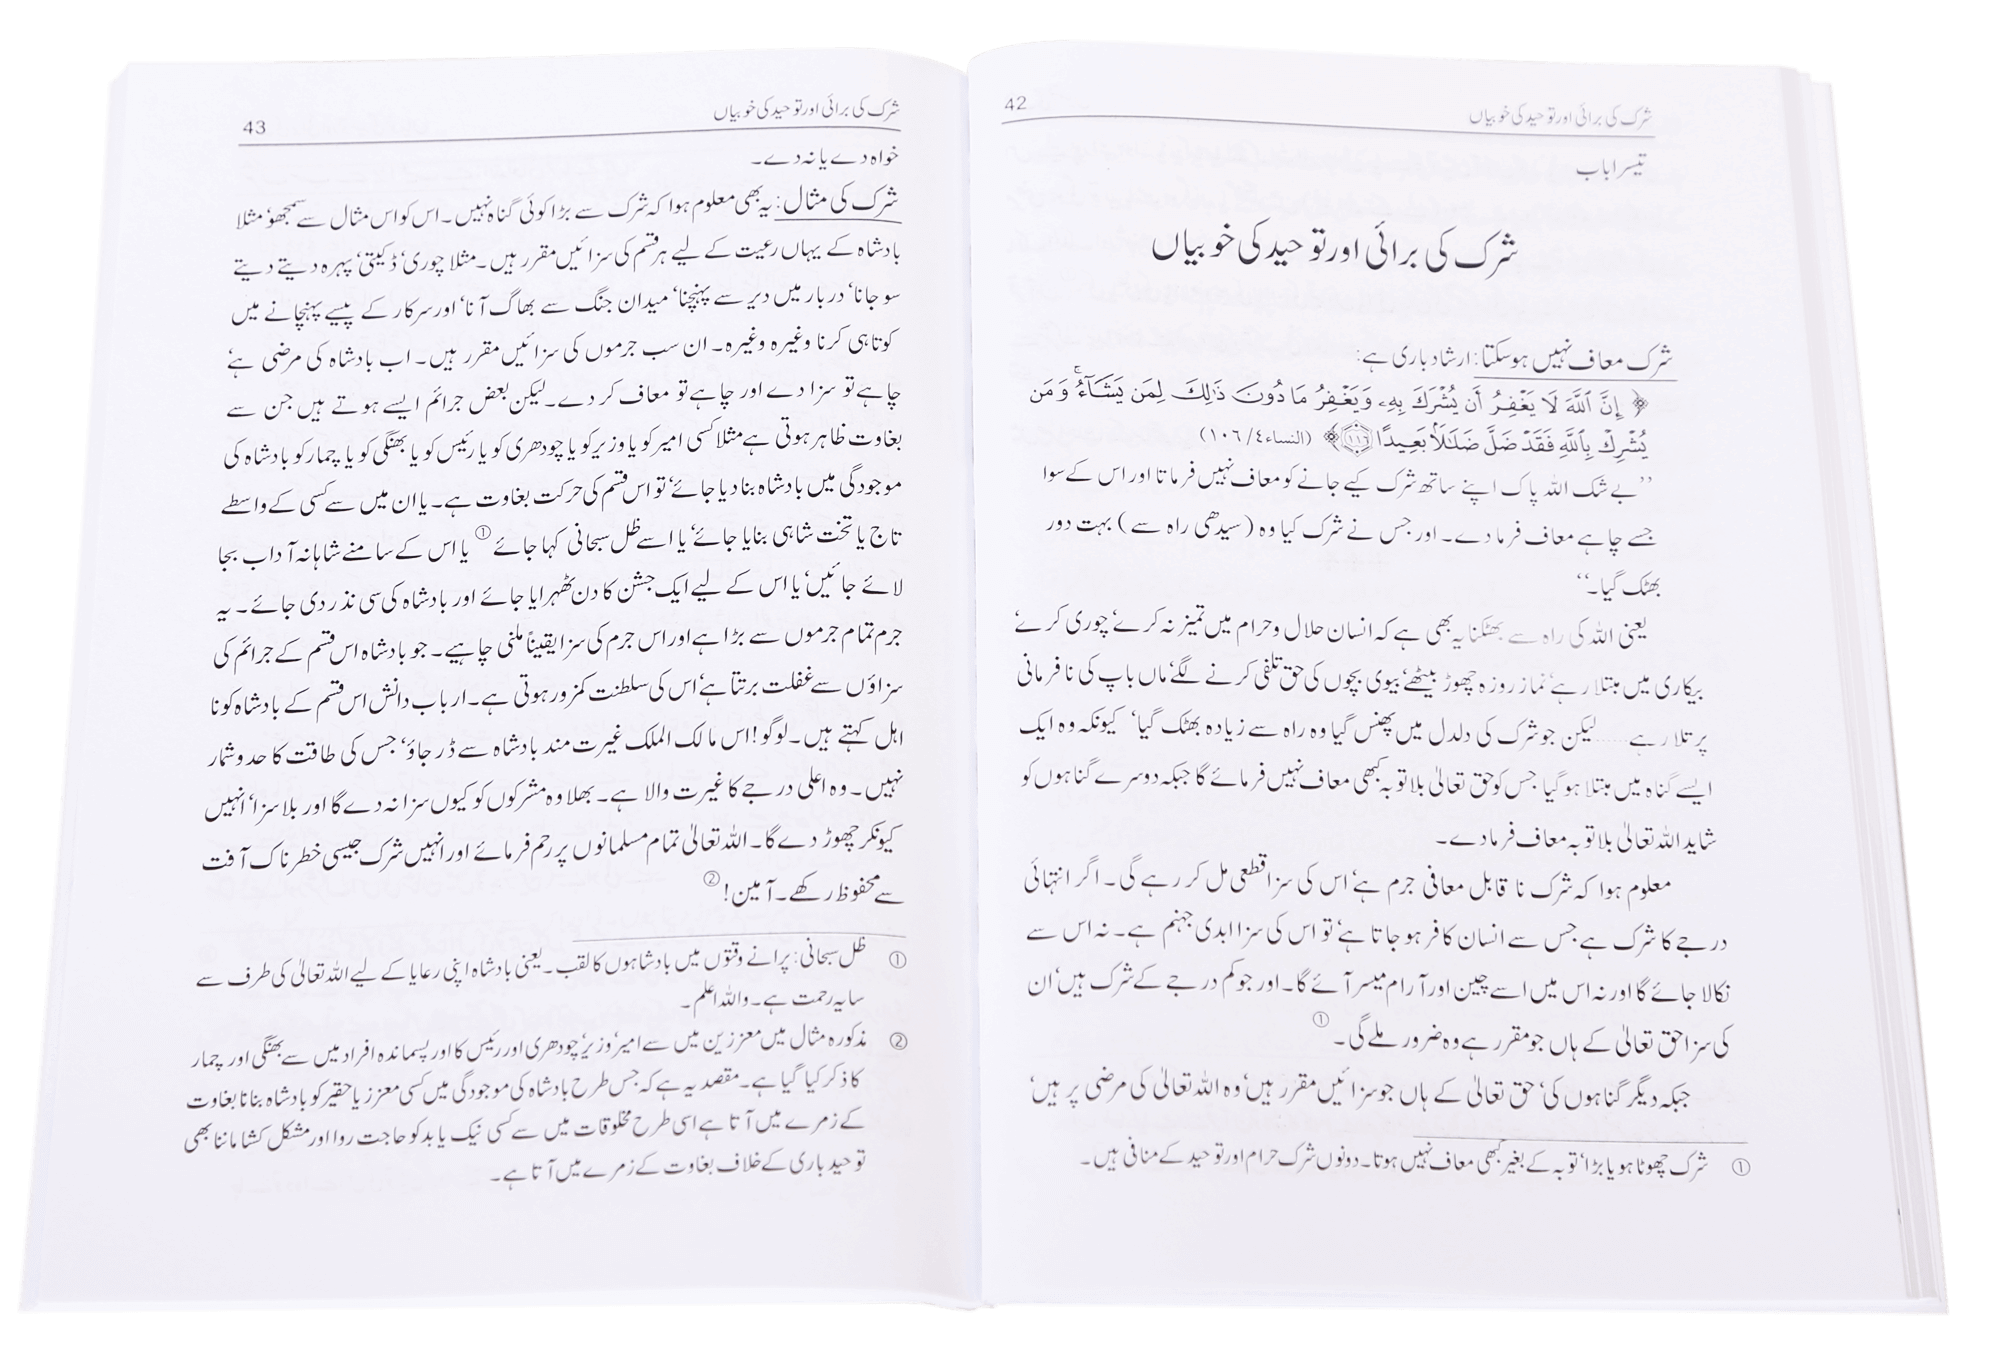 شرک کی برائی اور توحید کی خوبیاں 42
تیسرا باب
شرک کی برائی اور توحید کی خوبیاں
شرک معاف نہیں ہوسکتا: ارشاد باری ہے:
﴿ إِنَّ ٱللَّهَ لَا يَغۡفِرُ أَن يُشۡرَكَ بِهِۦ وَيَغۡفِرُ مَا دُونَ ذَٰلِكَ لِمَن يَشَآءُۚ وَمَن
يُشۡرِكۡ بِٱللَّهِ فَقَدۡ ضَلَّ ضَلَٰلَۢا بَعِيدًا ١١٦﴾ (النساء٤/١٠٦)
’’بے شک اللہ پاک اپنے ساتھ شرک کیے جانے کو معاف نہیں فرماتا اور اس کے سوا
جسے چاہے معاف فرمادے۔ اور جس نے شرک کیا وہ (سیدھی راہ سے) بہت دور
بھٹک گیا۔‘‘
یعنی اللہ کی راہ سے بھٹکنا یہ بھی ہے کہ انسان حلال وحرام میں تمیز نہ کرے‘ چوری کرے‘
بیکاری میں مبتلا رہے‘ نماز روزہ چھوڑ بیٹھے‘ بیوی بچوں کی حق تلفی کرنے لگے‘ ماں باپ کی نافرمانی
پر تلا رہے......لیکن جو شرک کی دلدل میں پھنس گیا وہ راہ سے زیادہ بھٹک گیا‘ کیونکہ وہ ایک
ایسے گناہ میں مبتلا ہوگیا جس کو حق تعالیٰ بلا توبہ کبھی معاف نہیں فرمائے گا جبکہ دوسرے گناہوں کو
شاید اللہ تعالیٰ بلا توبہ معاف فرمادے۔
معلوم ہوا کہ شرک نا قابل معافی جرم ہے‘ اس کی سزا قطعی مل کر رہے گی۔ اگر انتہائی
درجے کا شرک ہے جس سے انسان کافر ہو جاتا ہے‘ تو اس کی سزا ابدی جہنم ہے۔ نہ اس سے
نکالا جائے گا اور نہ اس میں اسے چین اور آرام میسر آئے گا۔ اور جو کم درجے کے شرک ہیں‘ ان
کی سزا حق تعالیٰ کے ہاں جو مقرر ہے وہ ضرور ملے گی۔ ①
جبکہ دیگر گناہوں کی‘ حق تعالیٰ کے ہاں جو سزائیں مقرر ہیں‘ وہ اللہ تعالیٰ کی مرضی پر ہیں‘
① شرک چھوٹا ہو یا بڑا‘ توبہ کے بغیر کبھی معاف نہیں ہوتا۔ دونوں شرک حرام اور توحید کے منافی ہیں۔
شرک کی برائی اور توحید کی خوبیاں 43
خواہ دے یا نہ دے۔
شرک کی مثال: یہ بھی معلوم ہوا کہ شرک سے بڑا کوئی گناہ نہیں۔ اس کو اس مثال سے سمجھو‘ مثلا
بادشاہ کے یہاں رعیت کے لیے ہر قسم کی سزائیں مقرر ہیں۔ مثلا چوری‘ ڈکیتی‘ پہرہ دیتے دیتے
سو جانا‘ دربار میں دیر سے پہنچنا‘ میدان جنگ سے بھاگ آنا‘ اور سرکار کے پیسے پہنچانے میں
کوتاہی کرنا وغیرہ وغیرہ۔ ان سب جرموں کی سزائیں مقرر ہیں۔ اب بادشاہ کی مرضی ہے‘
چاہے تو سزا دے اور چاہے تو معاف کر دے۔ لیکن بعض جرائم ایسے ہوتے ہیں جن سے
بغاوت ظاہر ہوتی ہے مثلا کسی امیر کو یا وزیر کو یا چودھری کو یا رئیس کو یا بھنگی کو یا چمار کو بادشاہ کی
موجودگی میں بادشاہ بنا دیا جائے‘ تو اس قسم کی حرکت بغاوت ہے۔ یا ان میں سے کسی کے واسطے
تاج یا تخت شاہی بنایا جائے‘ یا اسے ظل سبحانی کہا جائے ① یا اس کے سامنے شاہانہ آداب بجا
لائے جائیں‘ یا اس کے لیے ایک جشن کا دن ٹھہرایا جائے اور بادشاہ کی سی نذر دی جائے۔ یہ
جرم تمام جرموں سے بڑا ہے اور اس جرم کی سزا یقیناً ملنی چاہیے۔ جو بادشاہ اس قسم کے جرائم کی
سزاؤں سے غفلت برتتا ہے‘ اس کی سلطنت کمزور ہوتی ہے۔ ارباب دانش اس قسم کے بادشاہ کو نا
اہل کہتے ہیں۔ لوگو! اس مالک الملک غیرت مند بادشاہ سے ڈر جاؤ‘ جس کی طاقت کا حد وشمار
نہیں۔ وہ اعلی درجے کا غیرت والا ہے۔ بھلا وہ مشرکوں کو کیوں سزا نہ دے گا اور بلا سزا‘ انہیں
کیونکر چھوڑ دے گا۔ اللہ تعالیٰ تمام مسلمانوں پر رحم فرمائے اور انہیں شرک جیسی خطرناک آفت
سے محفوظ رکھے۔ آمین! ②
① ظل سبحانی: پرانے وقتوں میں بادشاہوں کا لقب۔ یعنی بادشاہ اپنی رعایا کے لیے اللہ تعالیٰ کی طرف سے
سایہ رحمت ہے۔ واللہ اعلم۔
② مذکورہ مثال میں معززین میں سے امیر‘ وزیر‘ چودھری اور رئیس کا اور پسماندہ افراد میں سے بھنگی اور چمار
کا ذکر کیا گیا ہے۔ مقصد یہ ہے کہ جس طرح بادشاہ کی موجودگی میں کسی معزز یا حقیر کو بادشاہ بنانا بغاوت
کے زمرے میں آتا ہے اسی طرح مخلوقات میں سے کسی نیک یا بد کو حاجت روا اور مشکل کشا ماننا بھی
توحید باری کے خلاف بغاوت کے زمرے میں آتا ہے۔